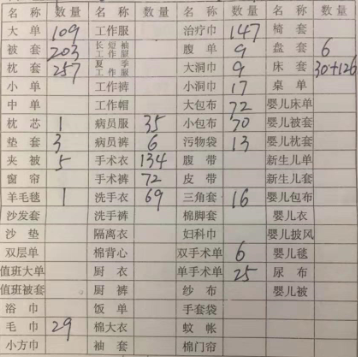 名 称 数量 名 称 数量 名 称 数量 名 称 数量
大 单 109 工作服 治疗巾 147 椅 套
被 套 203 长短袖工作服 腹 单 9 盘 套 6
枕 套 257 夏季工作服 大洞巾 9 床 套 30+126
小 单 工作裤 小洞巾 17 桌 单
中 单 工作帽 大包布 72 婴儿床单
枕 芯 1 病员服 35 小包布 70 婴儿被套
垫 套 3 病员裤 6 污物袋 13 婴儿枕套
夹 被 5 手术衣 134 腹 带 新生儿单
窗 帘 手术裤 72 皮 带 新生儿套
羊毛毯 1 洗手衣 69 三角套 16 婴儿包布
沙发套 洗手裤 棉脚套 婴儿衣
沙 垫 隔离衣 妇科巾 婴儿披风
双层单 棉背心 双手术单 6 婴儿毯
值班大单 厨 衣 单手术单 25 尿 布
值班被套 厨 裤 纱 布 婴儿被
浴 巾 饭 单 手套袋
毛 巾 29 棉大衣 蚊 帐
小方巾 袖 套 棉门帘